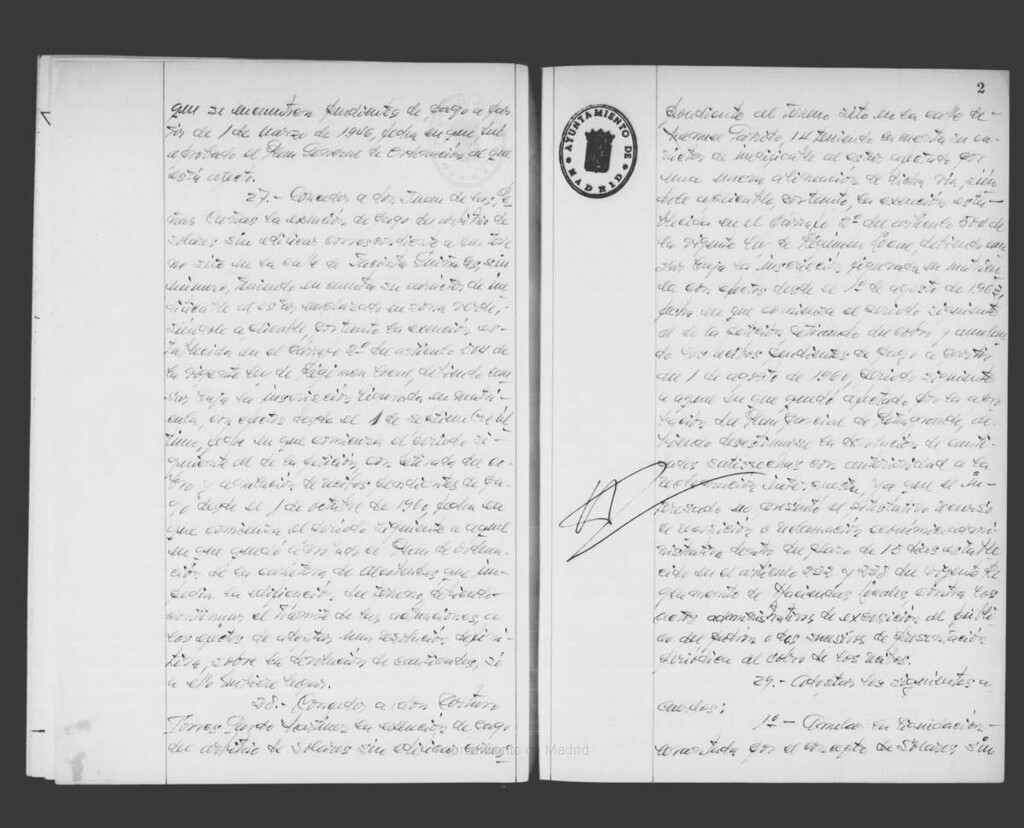 que se encuentran pendientes de pago a par-
tir de 1 de marzo de 1946, fecha en que fué
aprobado el Plan General de Ordenación al que
está afecto.
27.- Conceder a don Juan de las Pe-
ñas la exención de pago del arbitrio de
solares sin edificar correspondiente a un terre-
no sito en la calle de sin
número, teniendo en cuenta su carácter de in-
edificable al estar enclavado en zona verde,
siéndole aplicable, por tanto, la exención es-
tablecida en el párrafo 2º del artículo 504 de
la vigente Ley de Régimen Local, debiendo cau-
sar baja la inscripción figurada en matrí-
cula, con efectos desde el 1 de septiembre úl-
timo, fecha en que comienza el período si-
guiente al de la petición, con retirada del co-
bro y anulación de recibos pendientes de pa-
go desde el 1 de octubre de 1960, fecha en
que comienza el período siguiente a aquel
en que quedó aprobado el Plan de ordena-
ción de la carretera de que im-
pedía la edificación del terreno, debiendo
continuar el trámite de las actuaciones, a
los efectos de adoptar una resolución defini-
tiva, sobre la devolución de cantidades, si
a ello hubiere lugar.
28.- Conceder a don Arturo
Torres Martínez la exención de pago
del arbitrio de solares sin edificar corres-
2
AYUNTAMIENTO DE MADRID
pondiente al terreno sito en la calle de
14 teniendo en cuenta su ca-
rácter de inedificable al estar afectado por
una nueva alineación de dicha vía, sién-
dole aplicable, por tanto, la exención esta-
blecida en el párrafo 2º del artículo 504 de
la vigente Ley de Régimen Local, debiendo cau-
sar baja la inscripción figurada en matrícu-
la con efectos desde el 1º de agosto de 1963,
fecha en que comienza el período siguiente
al de la petición, retirando del cobro y anulan-
do los recibos pendientes de pago a partir
del 1 de agosto de 1960, período siguiente
a aquel en que quedó afectado por la apro-
bación del Plan parcial de Peñagrande, de-
biendo desestimarse la devolución de canti-
dades satisfechas con anterioridad a la
reclamación interpuesta, ya que el in-
teresado no presentó el potestativo recurso
de reposición o reclamación económico-admi-
nistrativa dentro del plazo de 15 días estable-
cido en el artículo 232 y 238 del vigente Re-
glamento de Haciendas Locales, contra los
actos administrativos de exposición al públi-
co del padrón o los sucesivos de presentación
periódica al cobro de los recibos.
29.- Adoptar los siguientes a-
cuerdos:
1º.- Anular la liquidación
por el concepto de solares sin